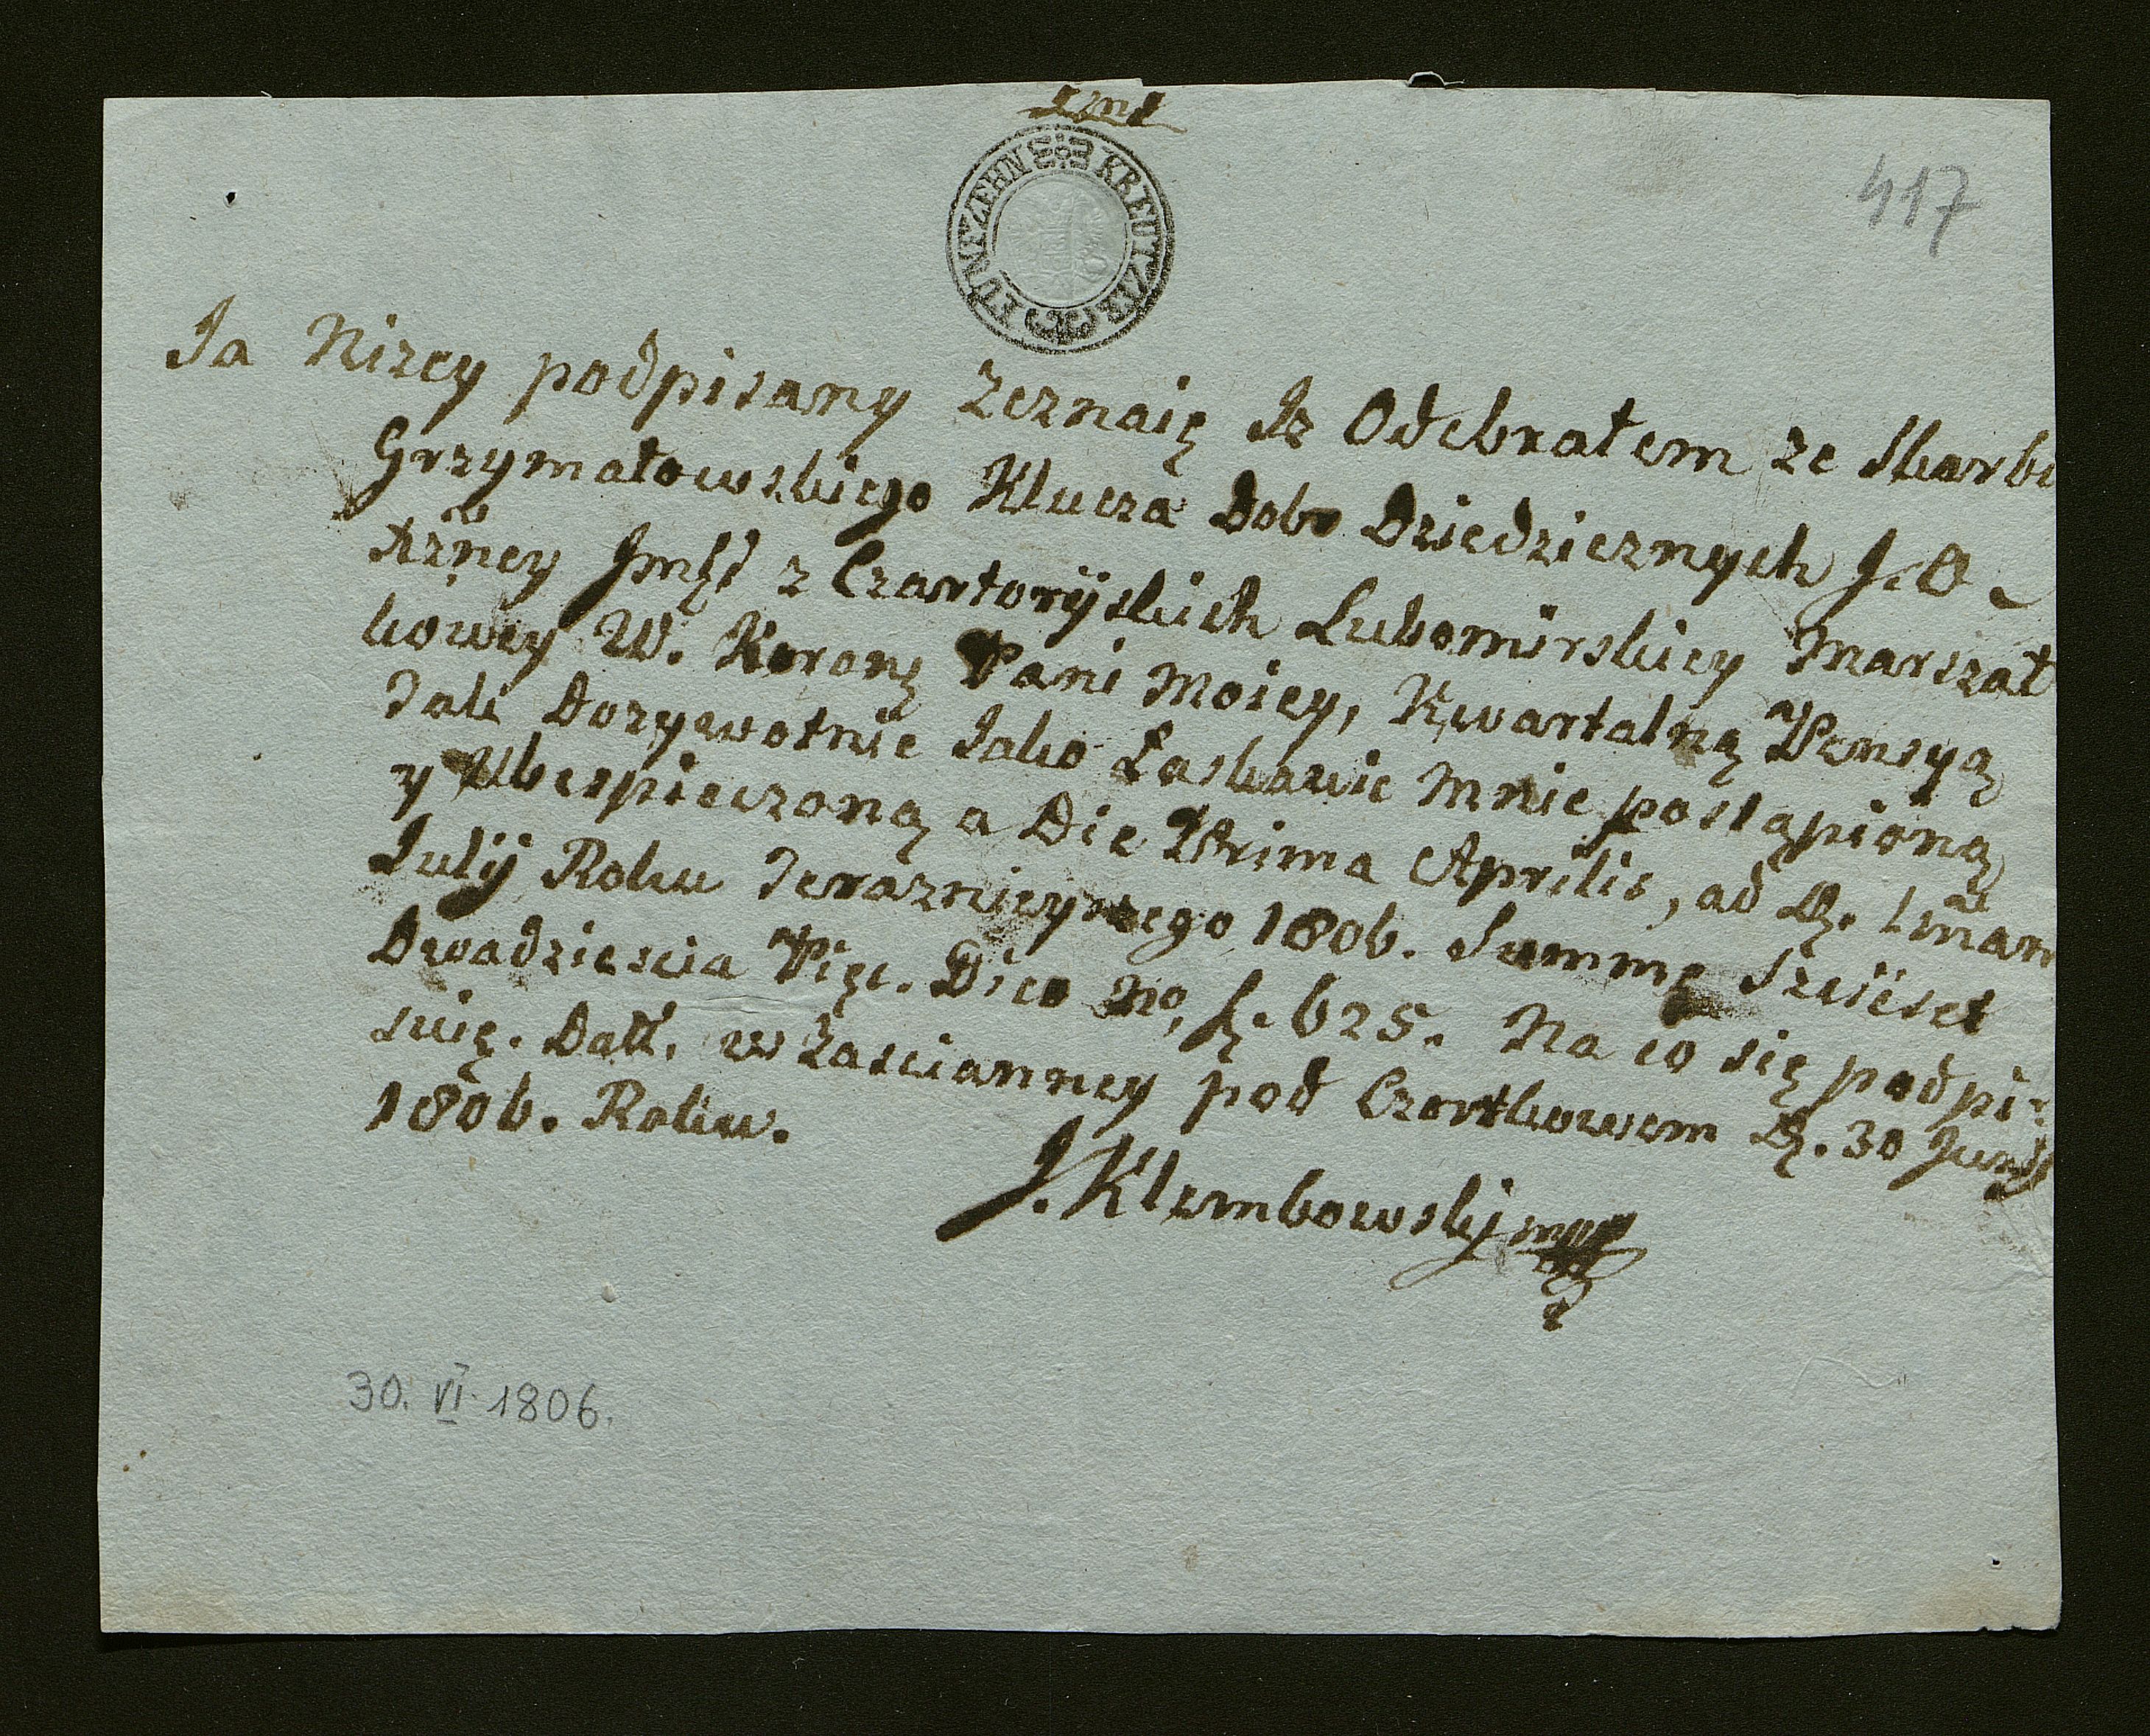 417
FUNFZEHN KREUTZER
Ja Nizey podpisany Zeznaię Iz Odebrałem ze Skarbu
Grzymałowskiego Klucza Dobr Dziedzicznych J. O.
Xzney Jmści z Czartoryskich Lubomirskiey Marszał
kowey W. Koronney Pani Moiey, Kwartalną Pensyą
Jak Dozywotnie Jako Łaskawie Mnie postąpioną
y Ubespieczoną a Die Prima Aprilis, ad D. 1mam
Julij Roku Teraznieyszego 1806. Summę Szesćset
Dwadziescia Pięc. Dico No, f. 625. Na co się podpi-
suię. Datt. w Zascianney pod Czortkowem D. 30 Junij
1806. Roku.
J. Klembowskij mpp
30. VI. 1806.